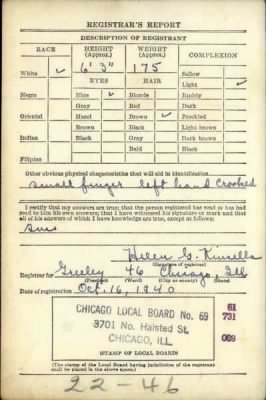 REGISTRAR'S REPORT
DESCRIPTION OF REGISTRANT
RACE HEIGHT (Approx.) WEIGHT (Approx.) COMPLEXION
White ✓ 6' 3" 175 Sallow
EYES HAIR Light ✓
Negro Blue ✓ Blonde Ruddy
Gray Red Dark
Oriental Hazel Brown ✓ Freckled
Brown Black Light brown
Indian Black Gray Dark brown
Bald Black
Filipino
Other obvious physical characteristics that will aid in identification
small finger left hand crooked
I certify that my answers are true; that the person registered has read or has had
read to him his own answers; that I have witnessed his signature or mark and that
all of his answers of which I have knowledge are true, except as follows:
Helen G. Kinsella
(Signature of registrar)
Registrar for Greeley 46 Chicago, Ill
(Precinct) (Ward) (City or county) (State)
Date of registration Oct. 16, 1940
CHICAGO LOCAL BOARD No. 69
3701 No. Halsted St.
CHICAGO, ILL.
61
731
069
(STAMP OF LOCAL BOARD)
(The stamp of the Local Board having jurisdiction of the registrant
shall be placed in the above space.)
22-46